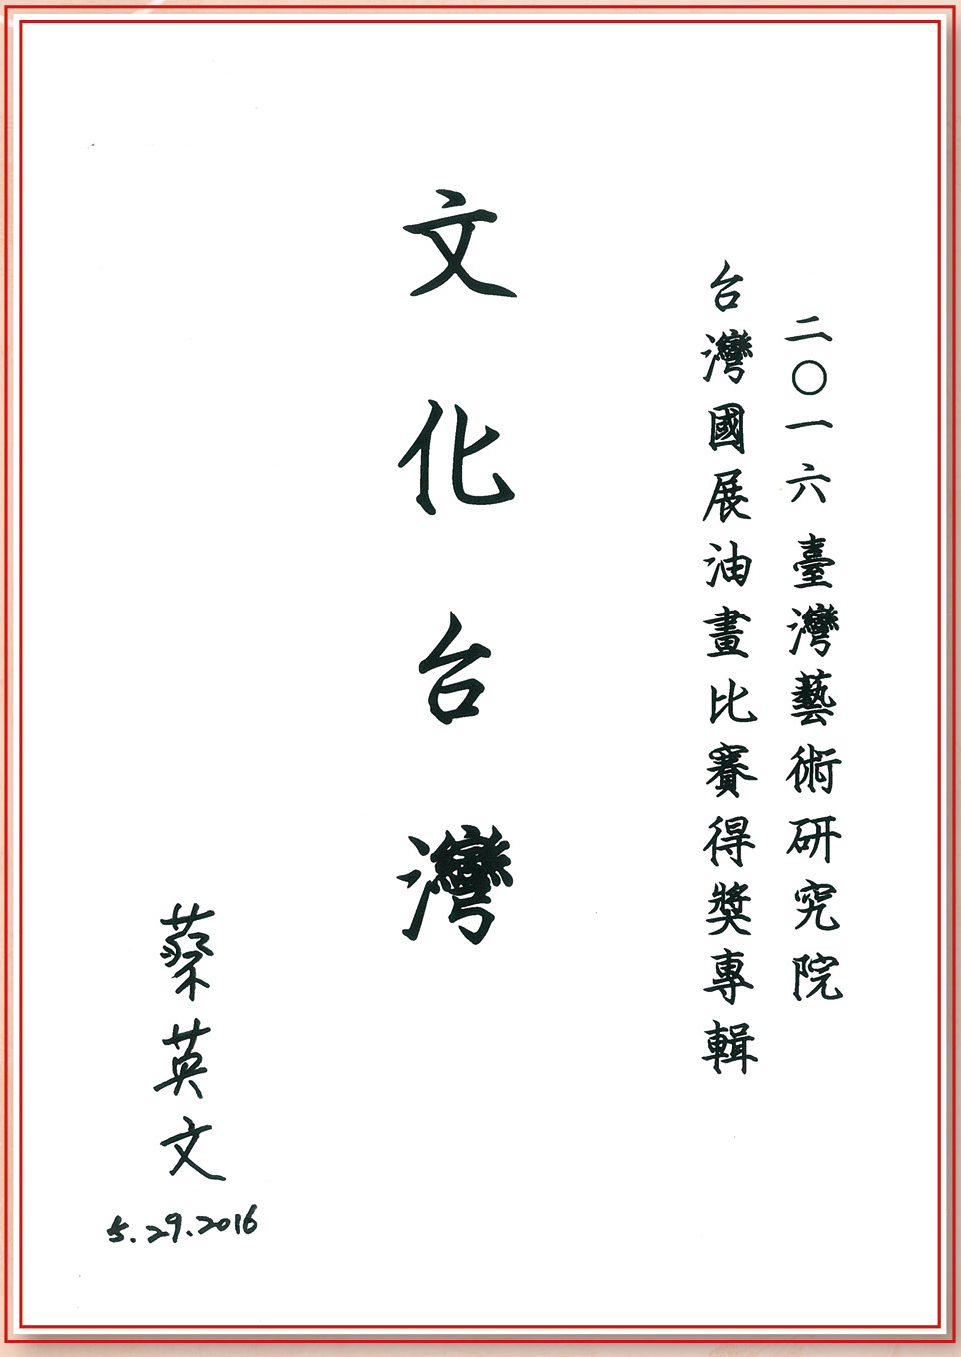 二〇一六臺灣藝術研究院
台灣國展油畫比賽得獎專輯
文化台灣
蔡英文
5.29.2016